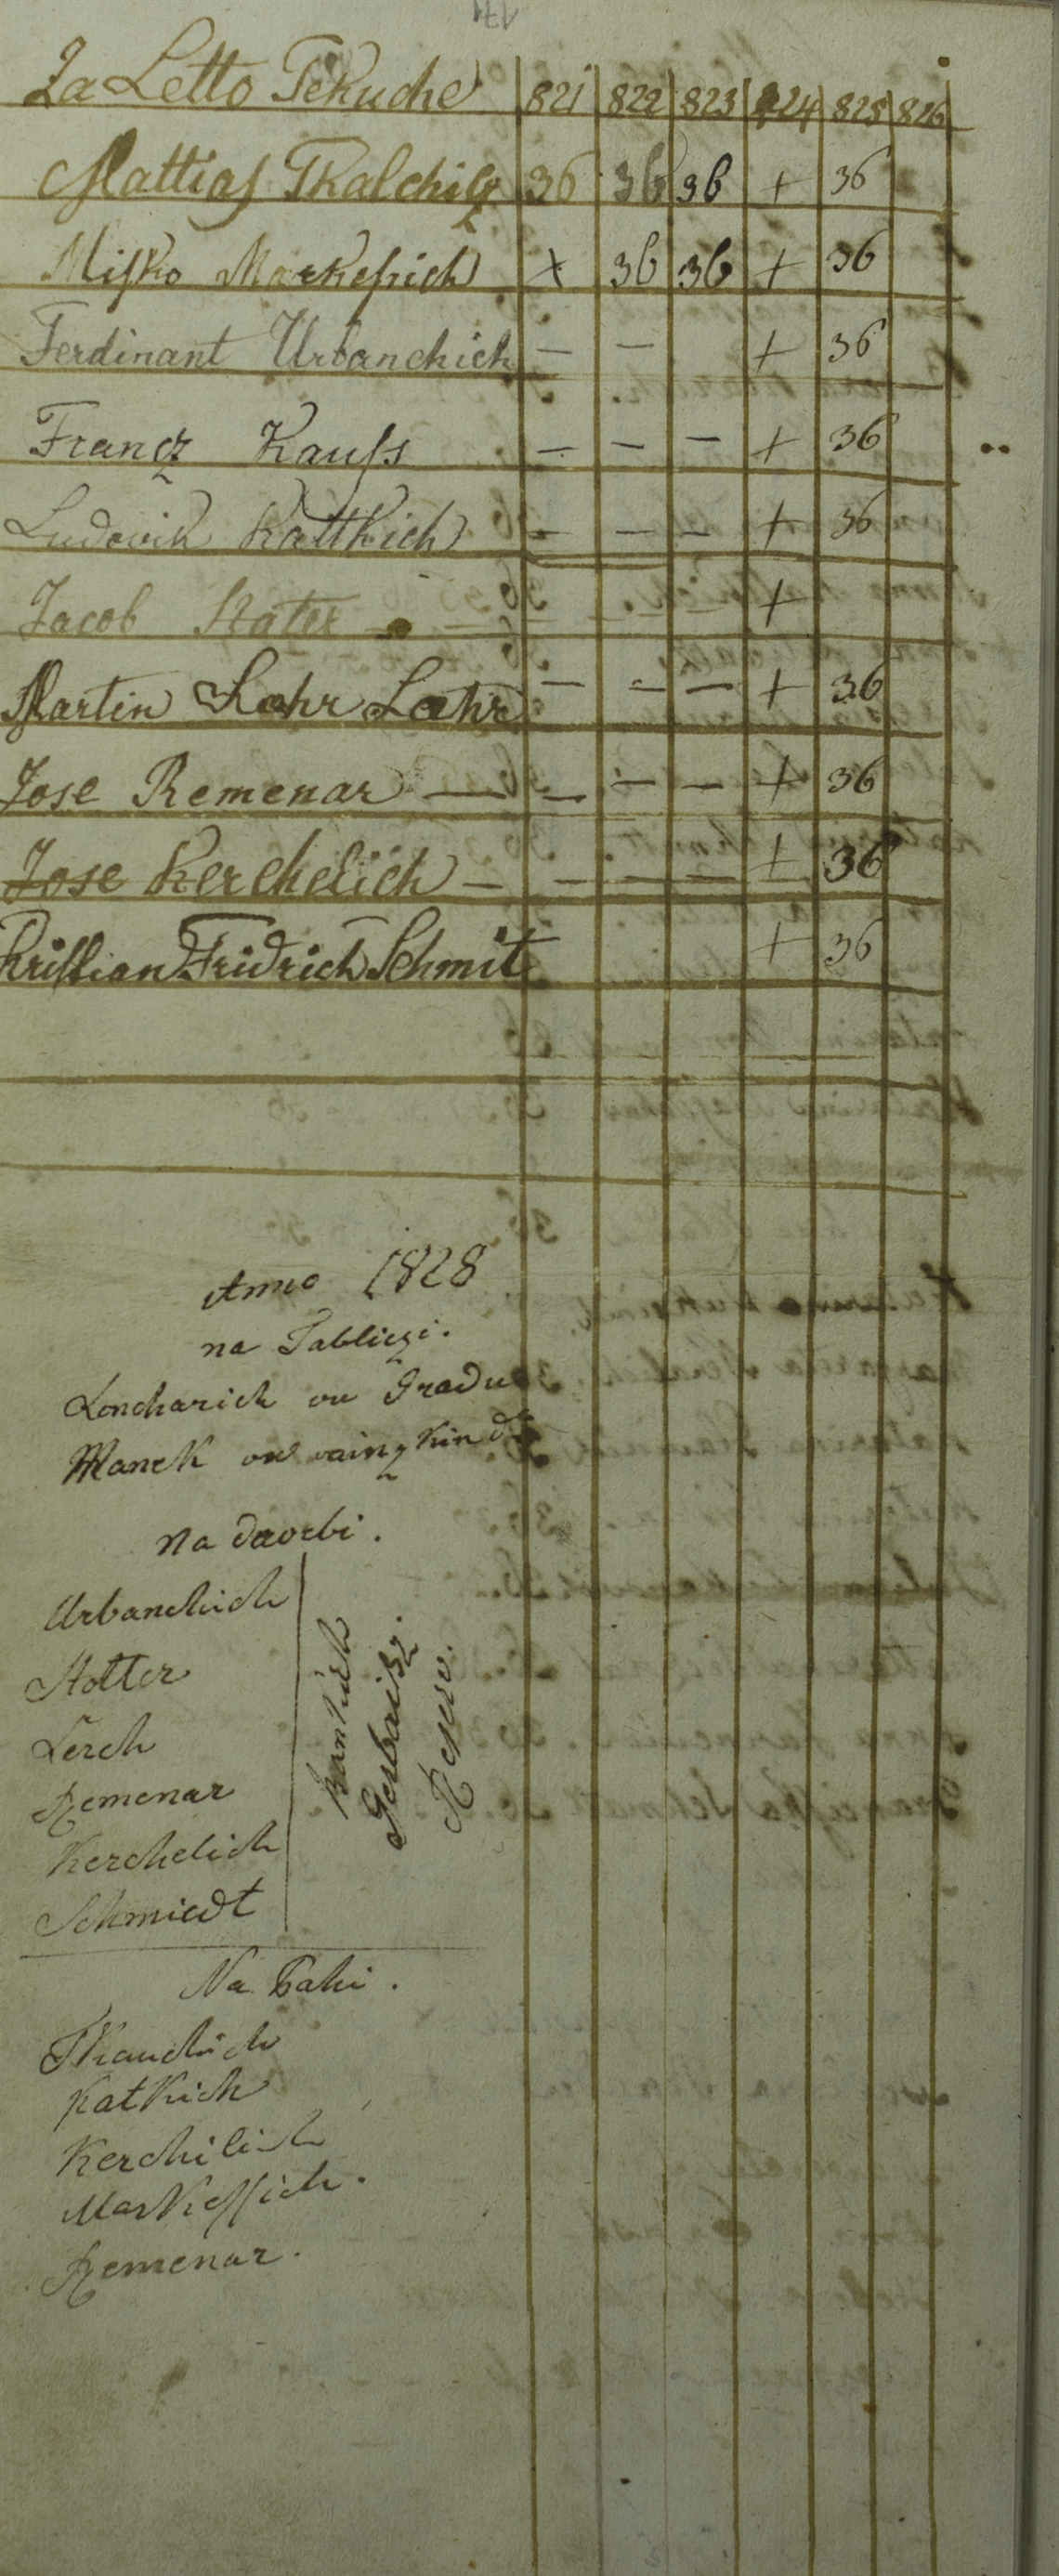 171
Za Letto Tekuche 821 822 823 824 825 826
Mattias Tkalchicz 36 36 36 + 36
Misko Markessich + 36 36 + 36
Ferdinant Urbanchich — — + 36
Francz Kauss — — — + 36
Ludovik Kattkich — — — + 36
Jacob Stater — — — +
Martin Lahr — — — + 36
Jose Remenar — — — — + 36
Jose Kerchelich — — — — + 36
Kristian Fridrich Schmit + 36
Anno 1828
na Tabliczi.
Loncharich vu Gradu
Manek vu
Na dvorbi.
Urbanchich
Stotter
Lerch
Remenar
Kerchelich
Schmiedt
Gerbaisz.
Na Pahi.
Tkauchich
Katkich
Kerchilich
Markessich.
Remenar.